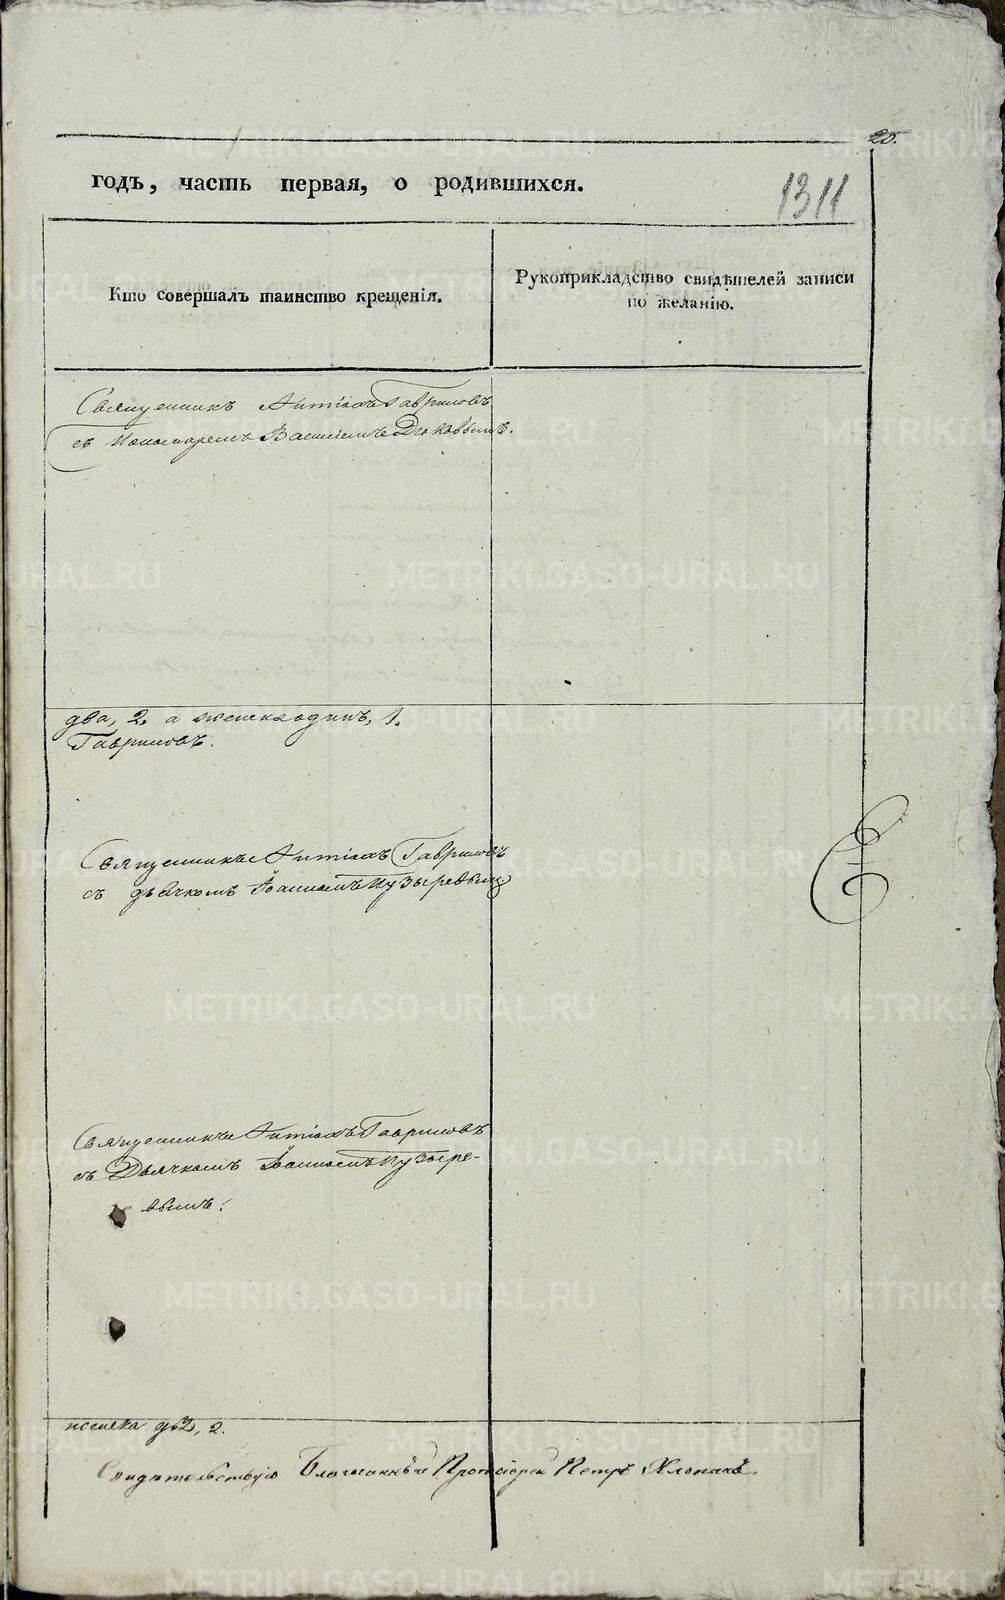 20.
годъ, часть первая, о родившихся.
1311
Кто совершалъ таинство крещенія.
Рукоприкладство свидѣтелей записи
по желанію.
Священникъ Антіохъ Гавриловъ
съ пономаремъ Василіемъ Дюковымъ.
два, 2. а женска одинъ, 1.
Гавриловъ.
Священникъ Антіохъ Гавриловъ
съ дьячкомъ Іоанномъ Пузыревымъ
Священникъ Антіохъ Гавриловъ
съ Дьячкомъ Іоанномъ Пузыре-
вымъ.
женска 2.
Свидѣтельствую Благочинный Протоіерей Петръ
METRIKI.GASO-URAL.RU